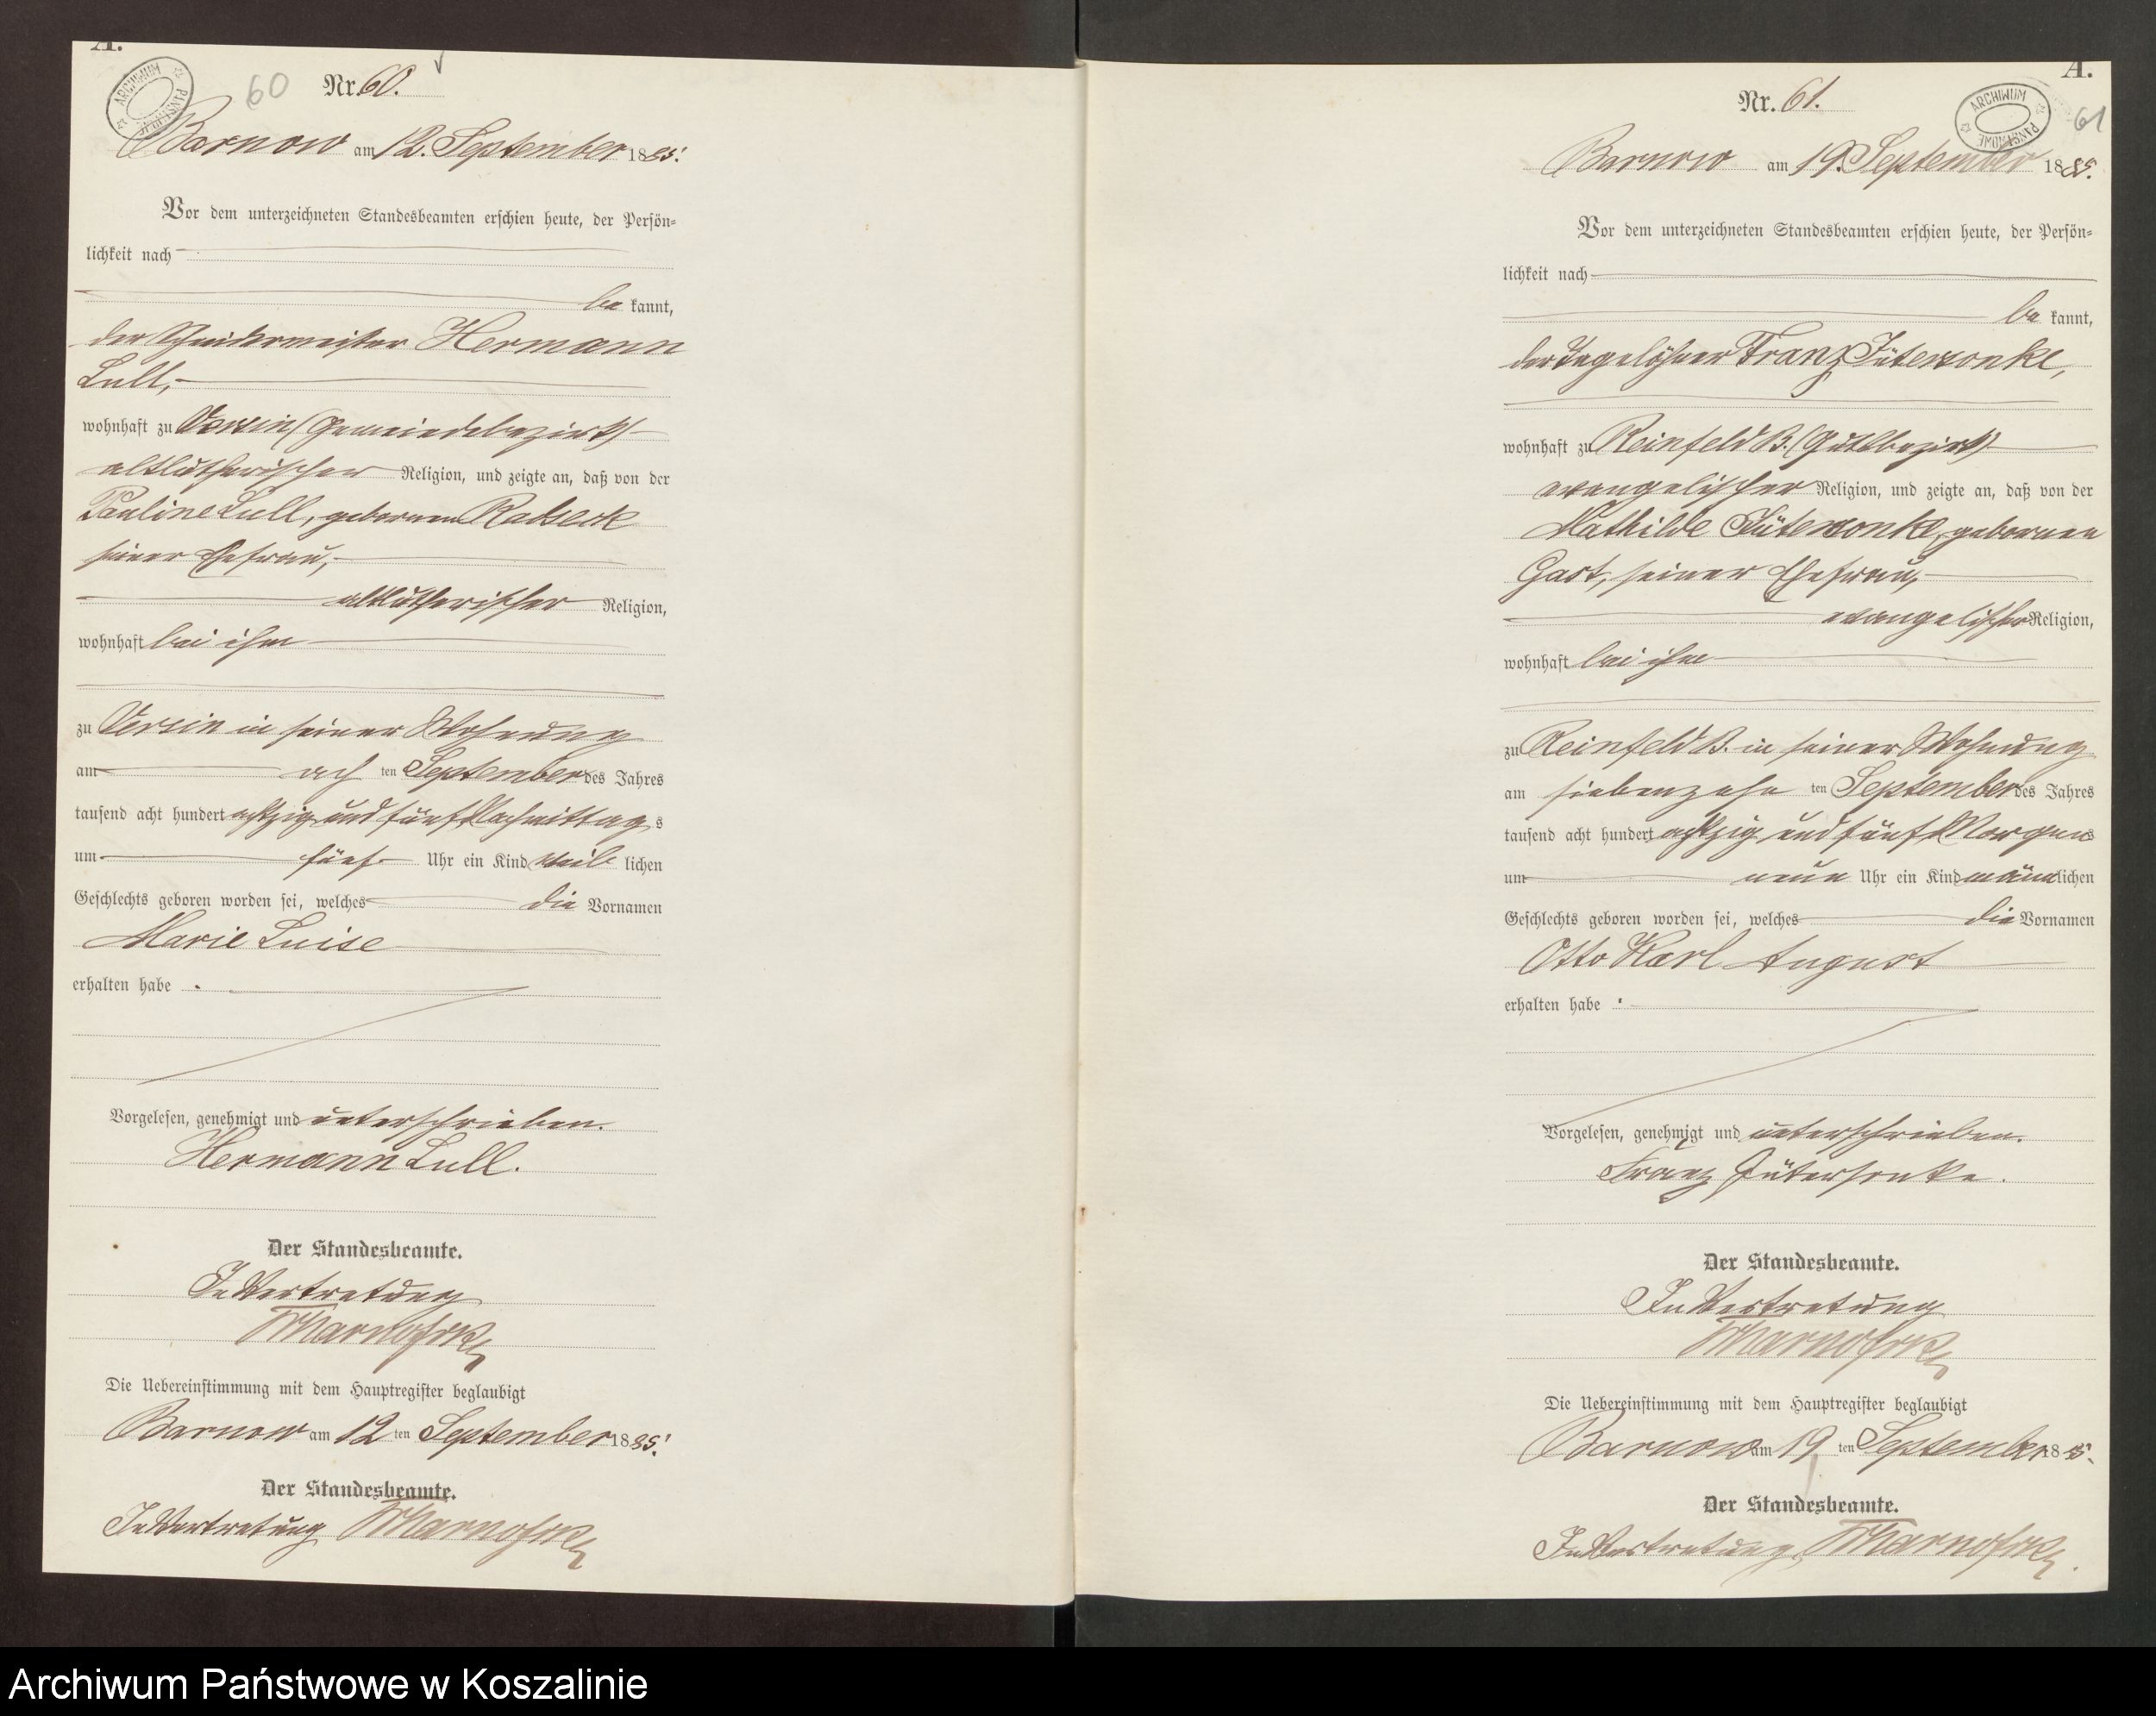 A.
ARCHIWUM PAŃSTWOWE
60
Nr. 60.
Barnow am 12. September 1885.
Vor dem unterzeichneten Standesbeamten erschien heute, der Persön-
lichkeit nach
be kannt,
der Schneidermeister Hermann
Lull,
wohnhaft zu Versin (Gemeindebezirk)
altlutherischer Religion, und zeigte an, daß von der
Pauline Lull, geborenen
seiner Ehefrau,
altlutherischer Religion,
wohnhaft bei ihm
zu Versin in seiner Wohnung
am ach ten September des Jahres
tausend acht hundert achtzig und fünf Nachmittags
um fünf Uhr ein Kind weib lichen
Geschlechts geboren worden sei, welches die Vornamen
Marie Luise
erhalten habe.
Vorgelesen, genehmigt und unterschrieben.
Hermann Lull.
Der Standesbeamte.
In Vertretung
Die Uebereinstimmung mit dem Hauptregister beglaubigt
Barnow am 12 ten September 1885.
Der Standesbeamte.
In Vertretung
A.
ARCHIWUM PAŃSTWOWE
61
Nr. 61.
Barnow am 19. September 1885.
Vor dem unterzeichneten Standesbeamten erschien heute, der Persön-
lichkeit nach
be kannt,
der Tagelöhner Franz Jütersonke,
wohnhaft zu Reinfeld B. (Gutsbezirk)
evangelischer Religion, und zeigte an, daß von der
Mathilde Jütersonke, geborenen
Gast, seiner Ehefrau,
evangelischer Religion,
wohnhaft bei ihm
zu Reinfeld B. in seiner Wohnung
am siebenzehn ten September des Jahres
tausend acht hundert achtzig und fünf Morgens
um neun Uhr ein Kind männlichen
Geschlechts geboren worden sei, welches die Vornamen
Otto Karl August
erhalten habe.
Vorgelesen, genehmigt und unterschrieben.
Franz Jütersonke.
Der Standesbeamte.
In Vertretung
Die Uebereinstimmung mit dem Hauptregister beglaubigt
Barnow am 19 ten September 1885.
Der Standesbeamte.
In Vertretung
Archiwum Państwowe w Koszalinie